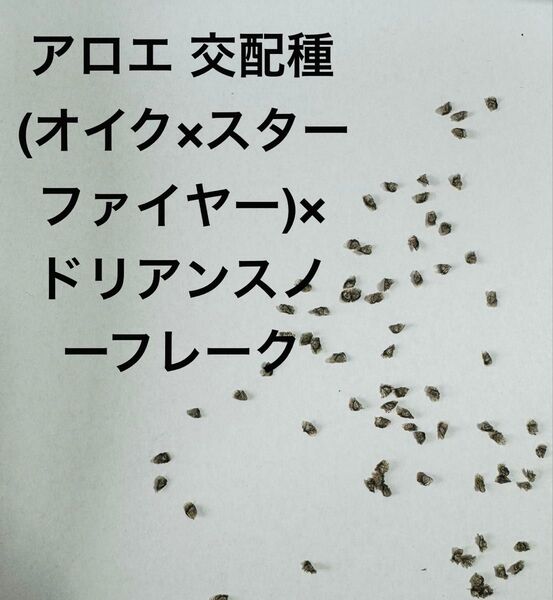 アロエ 交配種
(オイク×スター
ファイヤー)×
ドリアンスノ
ーフレーク